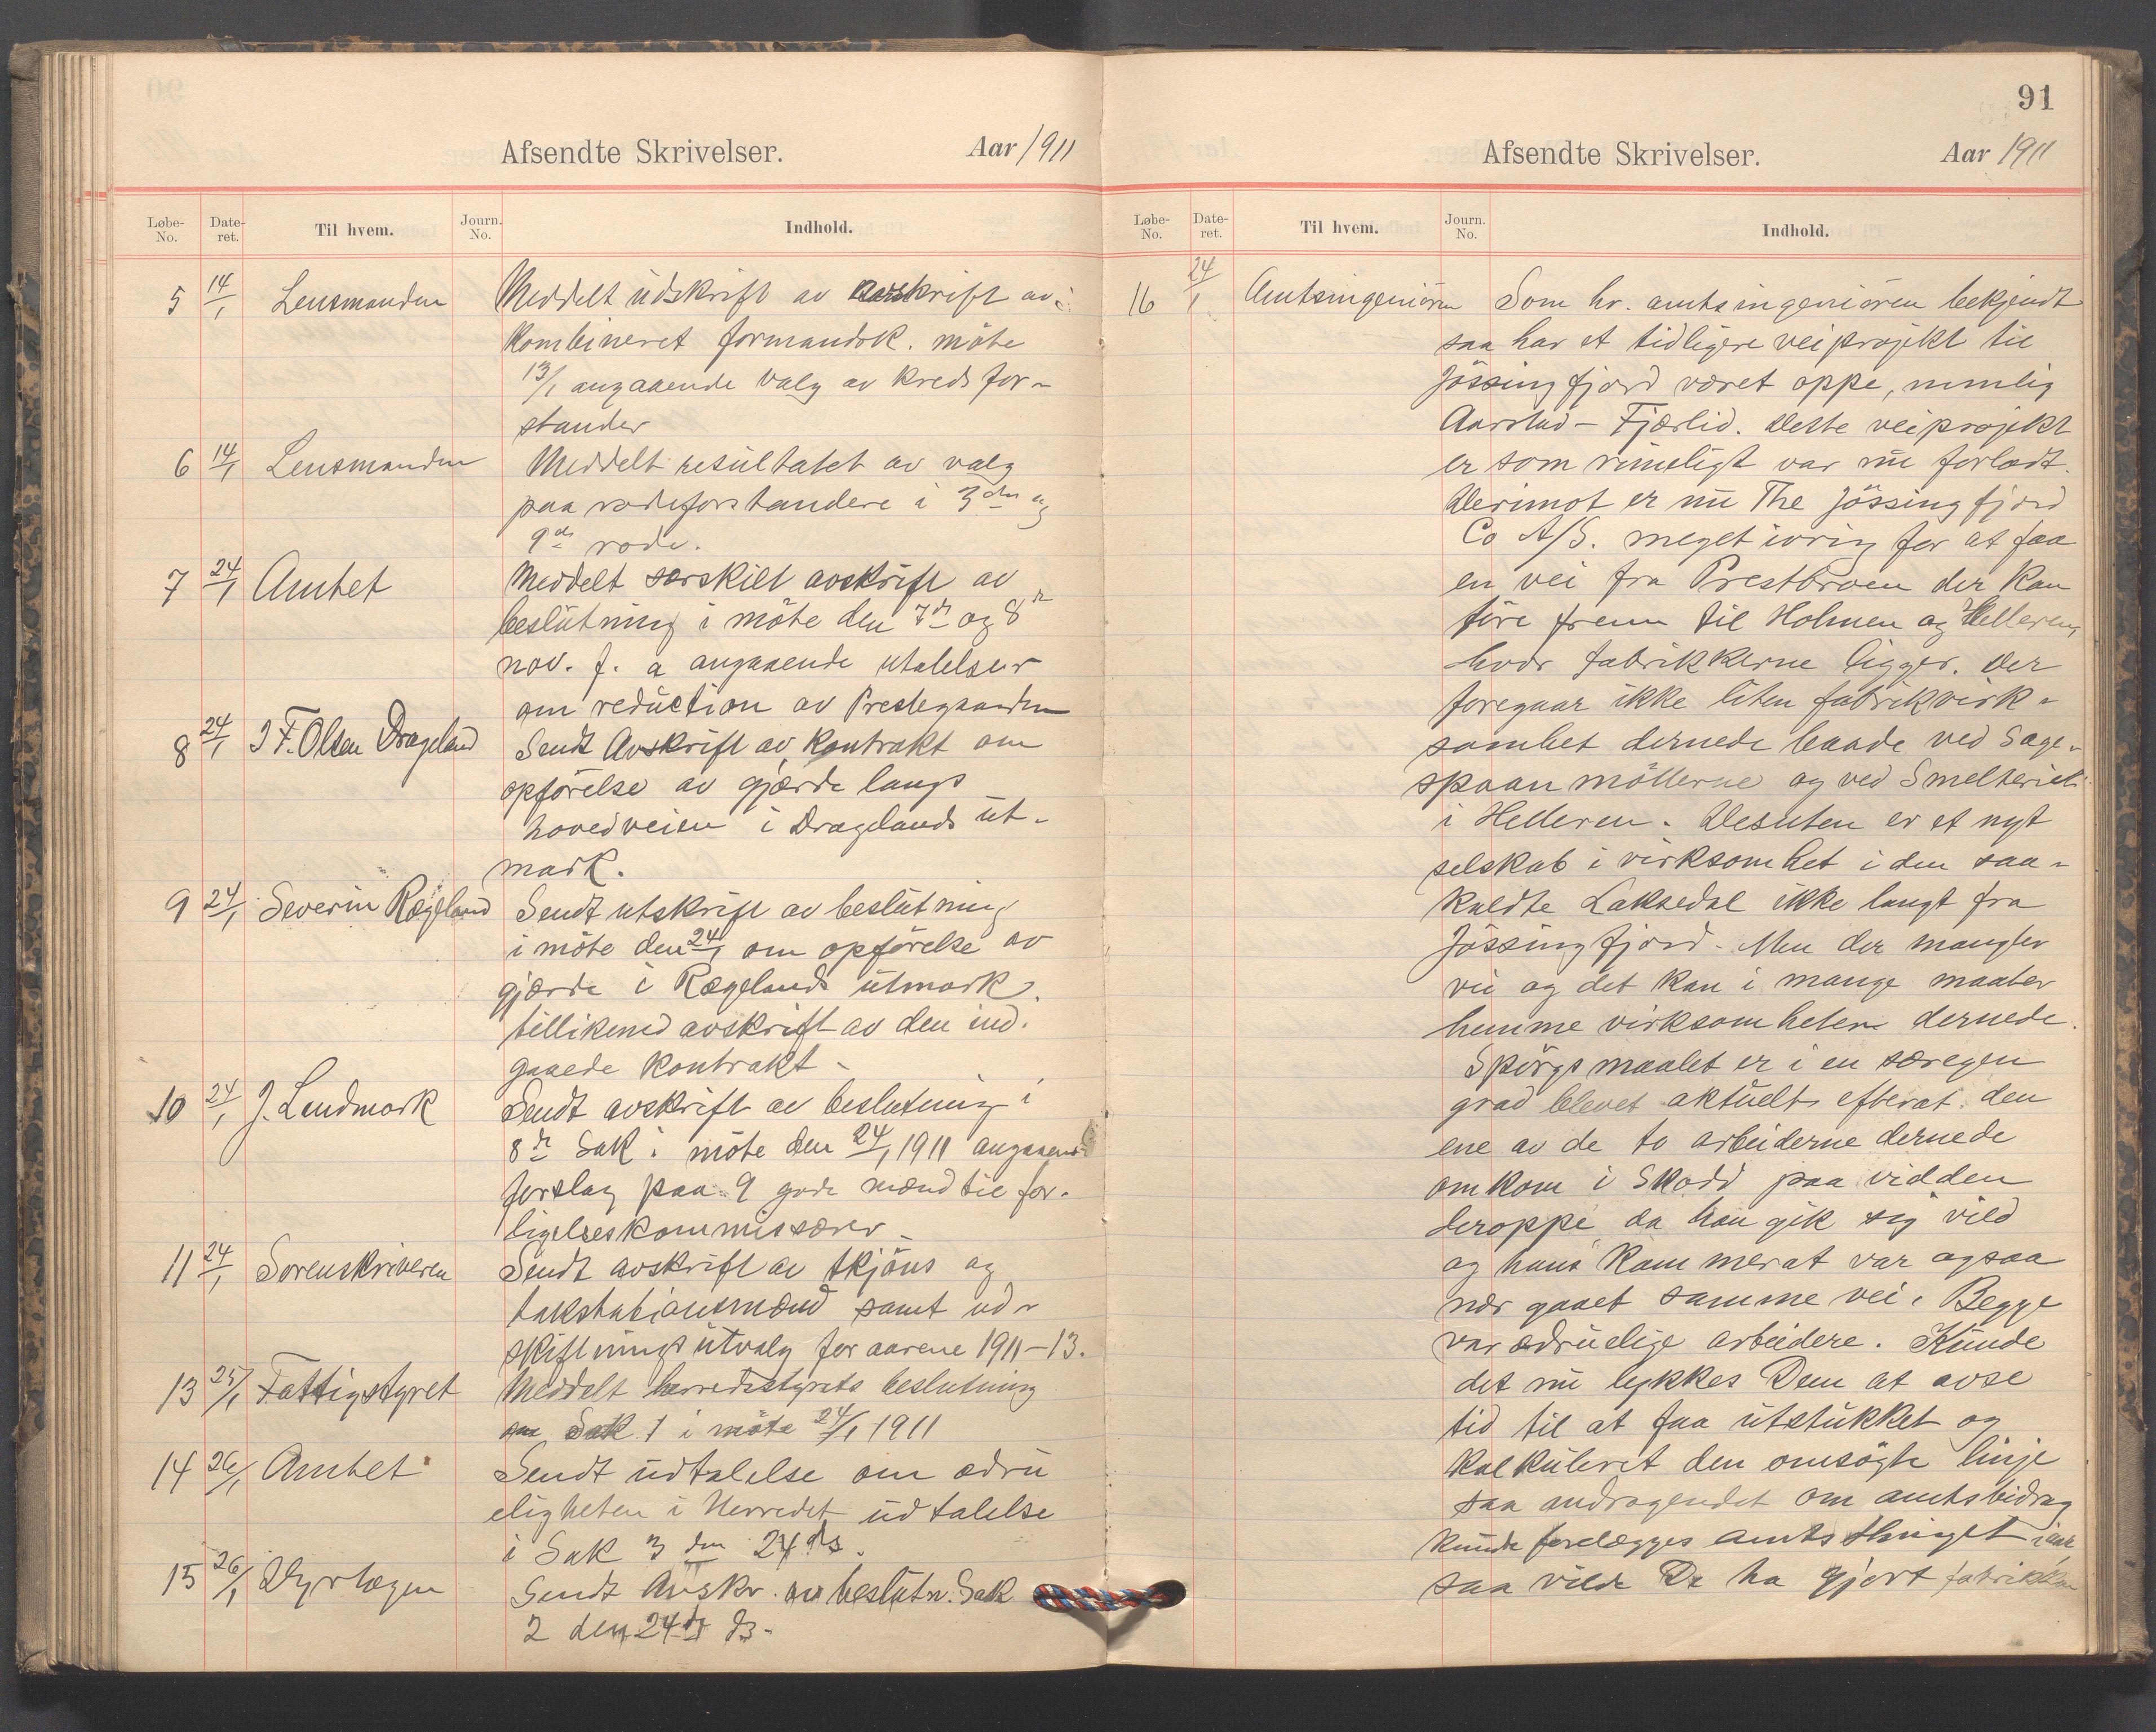 Afsendte Skrivelser. Aar 1911
Løbe-No. Date-ret. Til hvem. Journ. No. Indhold.
5 14/1 Lensmanden Meddelt üdskrift av avskrift av
kombineret formandsk. möte
13/1 angaaende valg av kredsfor-
stander
6 14/1 Lensmanden Meddelt resültatet av valg
paa rodeforstandere i 3die og
9de rode.
7 24/1 Amtet Meddelt særskilt avskrift av
beslütning i möte den 7de og 8de
nov. f. a angaaende utalelser
om redüction av Prestegaarden
8 24/1 J F. Olsen Drageland Sendt Avskrift av kontrakt om
opförelse av gjærde langs
hovedveien i Dragelands üt-
mark.
9 24/1 Severin Rægeland Sendt utskrift av beslütning
i möte den 24/1 om opförelse av
gjærde i Rægelands ütmark.
tillikemed avskrift av den ind-
gaaede kontrakt -
10 24/1 J. Lendmark Sendt avskrift av beslutning i
8de Sak i möte den 24/1 1911 angaaende
forslag paa 9 gode mænd til for-
ligelseskommissærer -
11 24/1 Sorenskriveren Sendt avskrift av skjöns og
takstationsmænd samt ud-
skiftnings ütvalg for aarene 1911-13.
13 25/1 Fattigstyret Meddelt herredsstyrets beslutning
om Sak 1 i möte 24/1 1911
14 26/1 Amtet Sendt üdtalelse om ædrü
eligheten i Herredet üdtalelse
i Sak 3 den 24 ds.
15 26/1 Dyrlægen Sendt Avskr. av beslütn. Sak
2 den 24de ds.
91
Afsendte Skrivelser. Aar 1911
Løbe-No. Date-ret. Til hvem. Journ. No. Indhold.
16 24/1 Amtsingeniören Som hr. amtsingeniören bekjendt
saa har et tidligere veiprojekt til
Jössingfjord været oppe, nemlig
Aarstad - Fjærlid. Dette veiprojekt
er som rimeligt var nü forladt.
Derimot er nü The Jössingfjord
Co A/S. meget ivrig for at faa
en vei fra Prestbroen der kan
före frem til Holmen og Helleren,
hvor fabrikkerne ligger. Der
foregaar ikke liten fabrikvirk-
somhet dernede baade ved Sage-
spaan möllerne og ved Smelteriet
i Helleren. Desuten er et nyt
selskab i virksomhet i den saa-
kaldte Laksedal ikke langt fra
Jössingfjord. Men der mangler
vei og det kan i mange maater
hemme virksomheten dernede.
Spörgsmaalet er i en særegen
grad blevet aktüelt efterat den
ene av de to arbeiderne dernede
omkom i Skodd paa vidden
deroppe da han gik sig vild
og hans kammerat var ogsaa
nær gaaet samme vei. Begge
var ædrüelige arbeidere. Künde
det nü lykkes Dem at avse
tid til at faa ütstükket og
kalküleret den omsögte linje
saa andragendet om amtsbidrag
künde forelægges amtsthinget iaar
saa vilde De ha gjort fabrikken